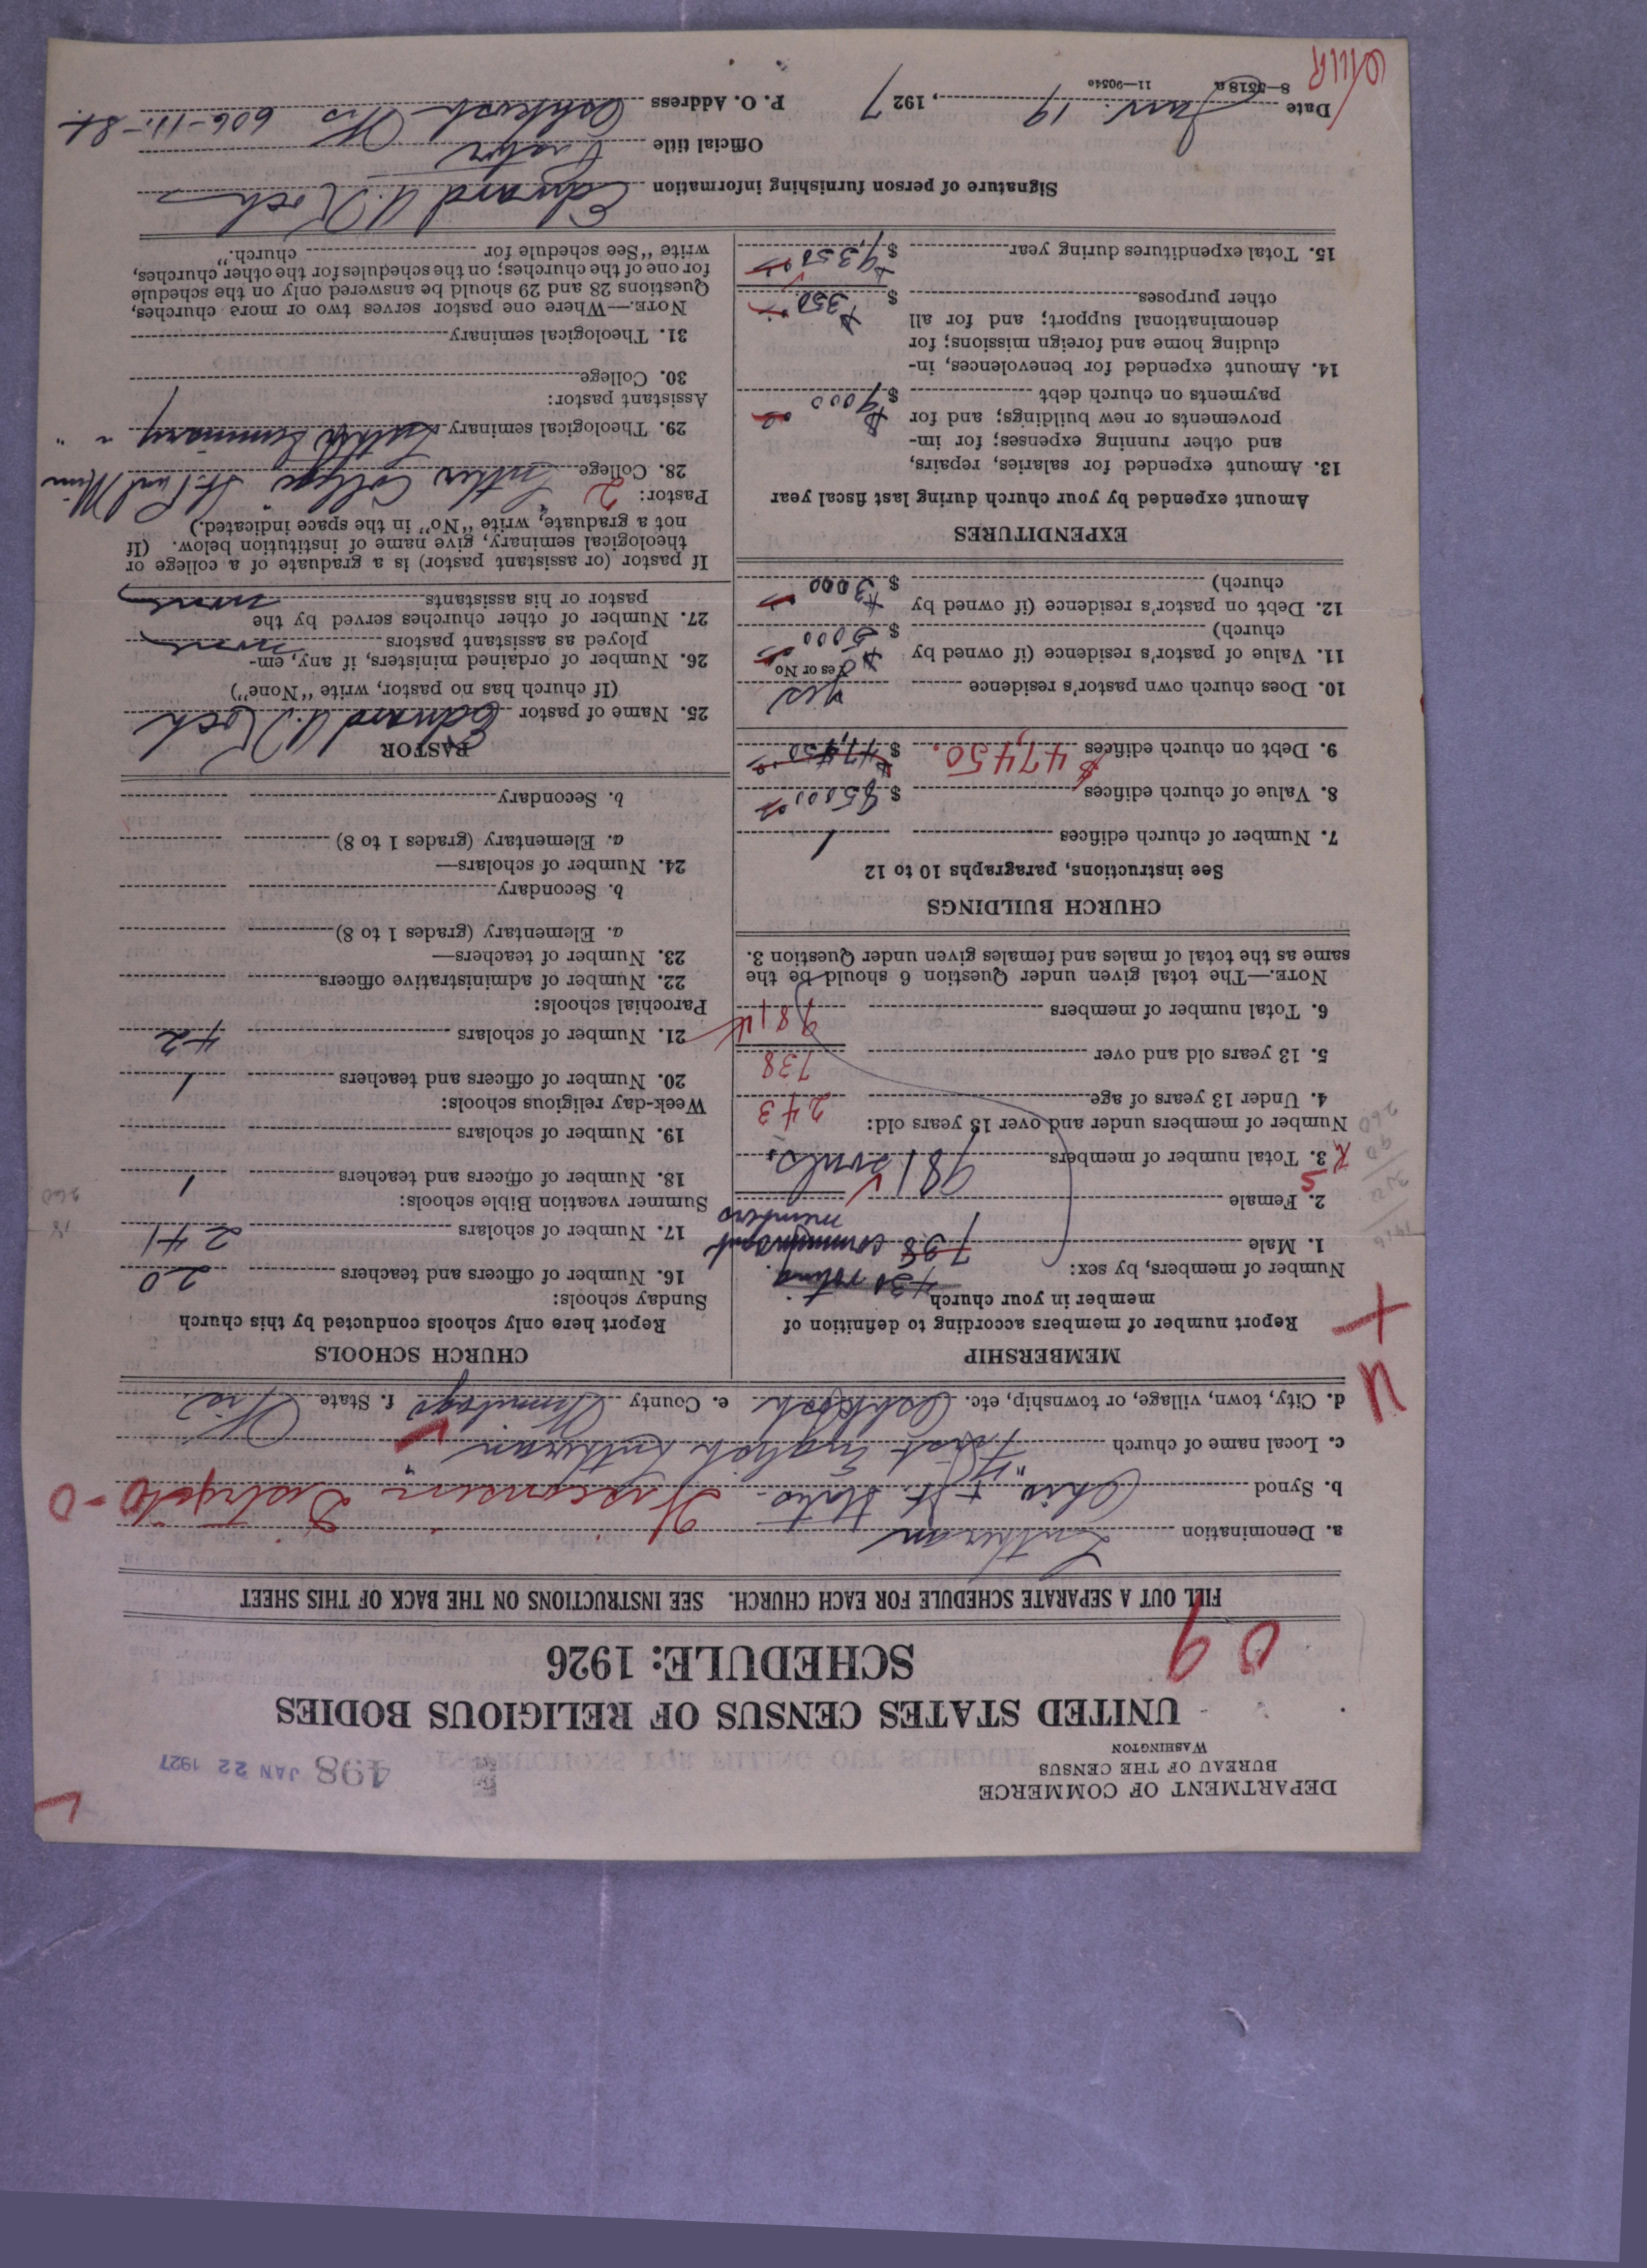 DEPARTMENT OF COMMERCE
BUREAU OF THE CENSUS
WASHINGTON
498 JAN 22 1927
UNITED STATES CENSUS OF RELIGIOUS BODIES
SCHEDULE: 1926
09
FILL OUT A SEPARATE SCHEDULE FOR EACH CHURCH. SEE INSTRUCTIONS ON THE BACK OF THIS SHEET
a. Denomination Lutheran
b. Synod Ohio & St. States - Wisconsin District 0-0
c. Local name of church First English Lutheran
d. City, town, village, or township, etc. Oshkosh e. County Winnebago f. State Wis
MEMBERSHIP
Report number of members according to definition of
member in your church
Number of members, by sex: 430 voting
1. Male 738 communicant
members
2. Female
3. Total number of members 981 souls
Number of members under and over 13 years old:
4. Under 13 years of age 243
5. 13 years old and over 738
6. Total number of members 981
NOTE.—The total given under Question 6 should be the
same as the total of males and females given under Question 3.
CHURCH BUILDINGS
See instructions, paragraphs 10 to 12
7. Number of church edifices 1
8. Value of church edifices $85000
9. Debt on church edifices $47,450. $47,450
10. Does church own pastor's residence Yes
Yes or No
11. Value of pastor's residence (if owned by
church) $5000
12. Debt on pastor's residence (if owned by
church) $3000
EXPENDITURES
Amount expended by your church during last fiscal year
13. Amount expended for salaries, repairs,
and other running expenses; for im-
provements or new buildings; and for
payments on church debt $9000
14. Amount expended for benevolences, in-
cluding home and foreign missions; for
denominational support; and for all
other purposes $350
15. Total expenditures during year $9,350
CHURCH SCHOOLS
Report here only schools conducted by this church
Sunday schools:
16. Number of officers and teachers 20
17. Number of scholars 241
Summer vacation Bible schools:
18. Number of officers and teachers 1
19. Number of scholars
Week-day religious schools:
20. Number of officers and teachers 1
21. Number of scholars 42
Parochial schools:
22. Number of administrative officers
23. Number of teachers—
a. Elementary (grades 1 to 8)
b. Secondary
24. Number of scholars—
a. Elementary (grades 1 to 8)
b. Secondary
PASTOR
25. Name of pastor Edward W. Koch
(If church has no pastor, write "None")
26. Number of ordained ministers, if any, em-
ployed as assistant pastors none
27. Number of other churches served by the
pastor or his assistants none
If pastor (or assistant pastor) is a graduate of a college or
theological seminary, give name of institution below. (If
not a graduate, write "No" in the space indicated.)
Pastor: 2
28. College Luther College St. Paul Minn
29. Theological seminary Luther Seminary " "
Assistant pastor:
30. College
31. Theological seminary
NOTE.—Where one pastor serves two or more churches,
Questions 28 and 29 should be answered only on the schedule
for one of the churches; on the schedules for the other churches,
write "See schedule for church."
Signature of person furnishing information Edward W. Koch
Official title Pastor
P. O. Address Oshkosh Wis 606-11-St.
Date Jan. 19, 1927
8—5518a 11—9034e